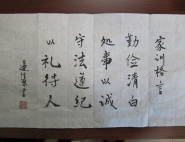 家训格言
勤俭清白
处事以诚
守法遵纪
以礼待人